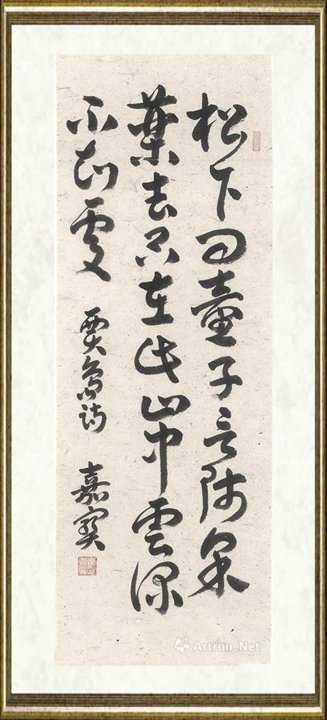 松下问童子言师采
药去只在此山中云深
不知处 贾岛诗 嘉宝
Artron.Net